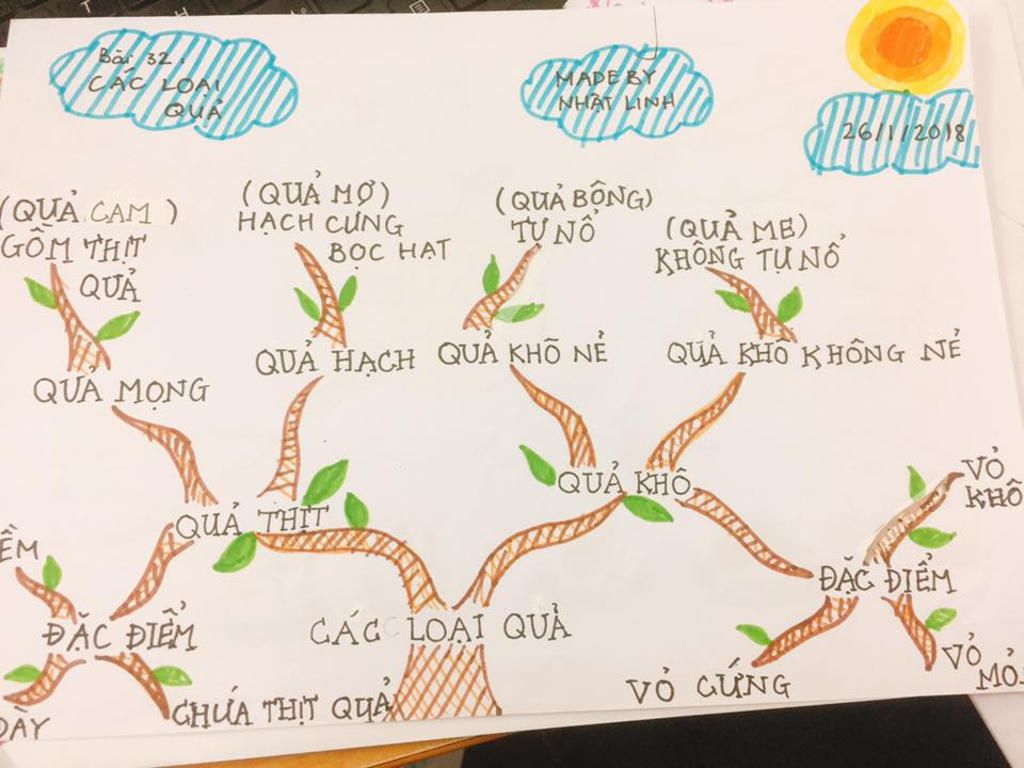 Bài 32:
CÁC LOẠI
QUẢ
MADE BY
NHẬT LINH
26/1/2018
(QUẢ CAM)
GỒM THỊT
QUẢ
(QUẢ MƠ)
HẠCH CỨNG
BỌC HẠT
(QUẢ BÔNG)
TỰ NỔ
(QUẢ ME)
KHÔNG TỰ NỔ
QUẢ MỌNG
QUẢ HẠCH
QUẢ KHÔ NẺ
QUẢ KHÔ KHÔNG NẺ
QUẢ THỊT
QUẢ KHÔ
VỎ
KHÔ
ĐẶC ĐIỂM
CÁC LOẠI QUẢ
ĐẶC ĐIỂM
CHỨA THỊT QUẢ
VỎ CỨNG
VỎ
DÀY